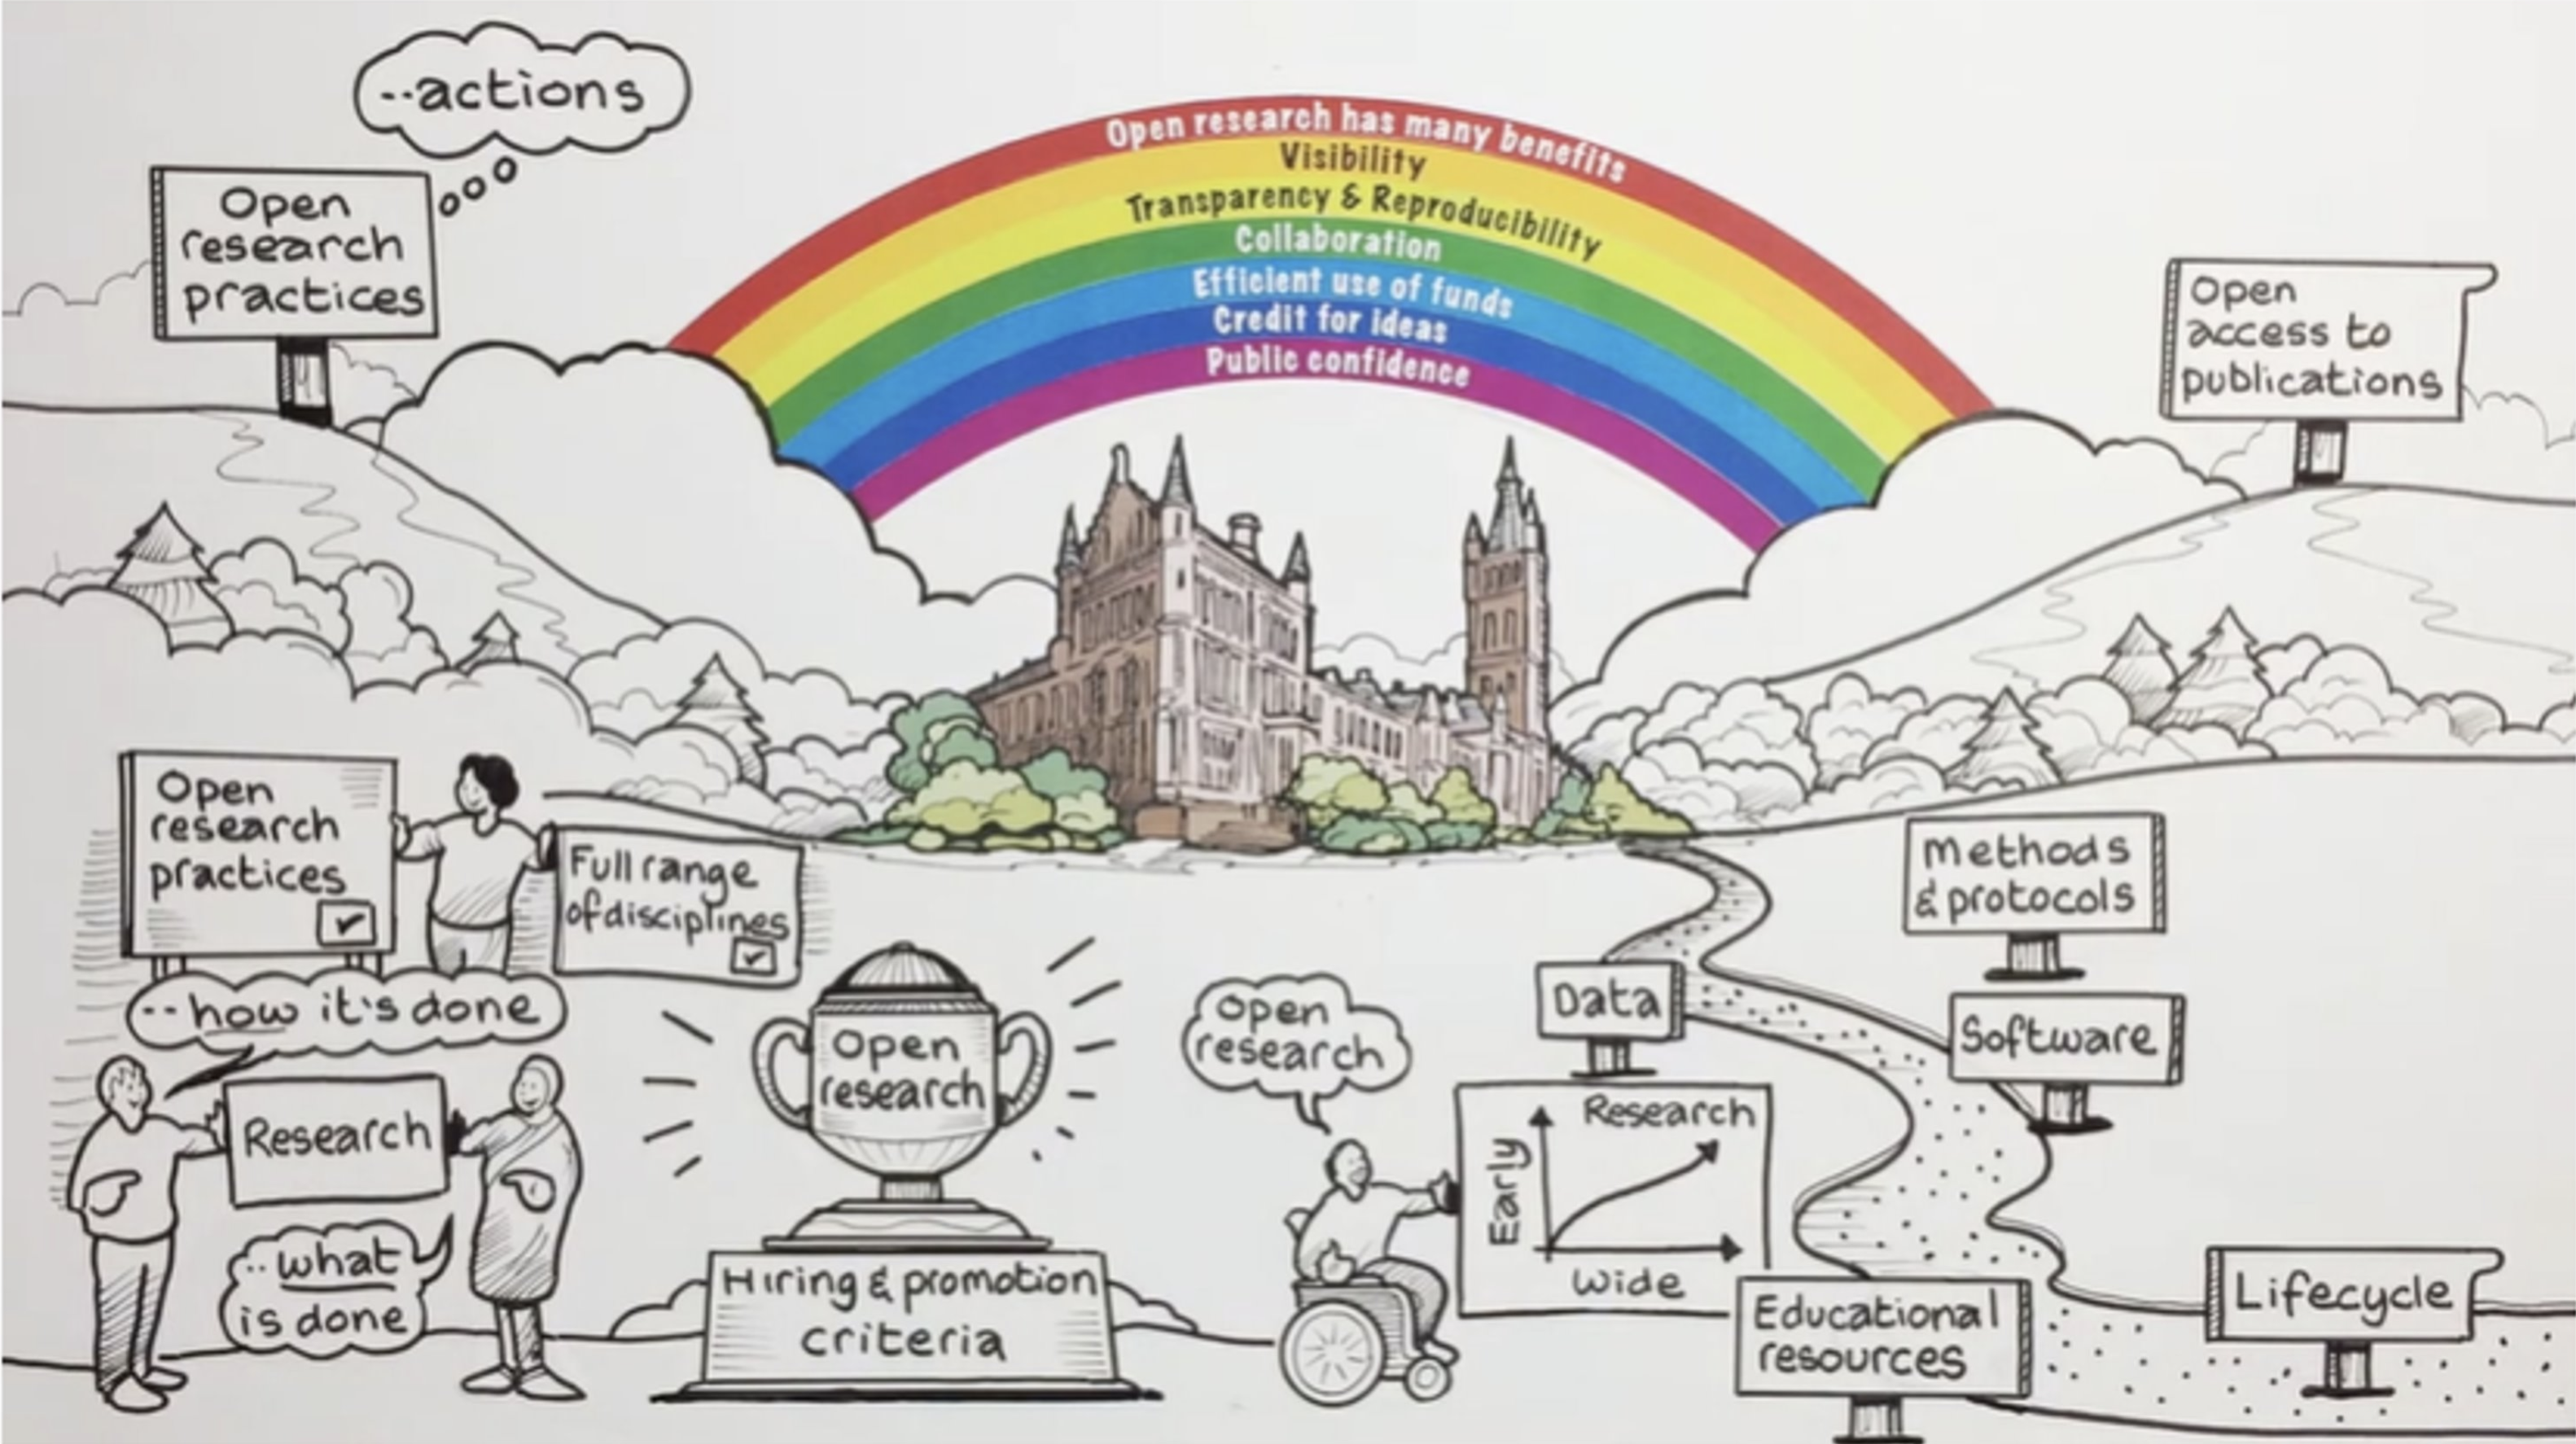 --actions
Open
research
practices
Open research has many benefits
Visibility
Transparency & Reproducibility
Collaboration
Efficient use of funds
Credit for ideas
Public confidence
Open
access to
publications
Open
research
practices
Full range
of disciplines
--how it's done
Research
..what
is done
Open
research
Hiring & promotion
criteria
Open
research
Research
Early
Wide
Data
Methods
& protocols
Software
Educational
resources
Lifecycle